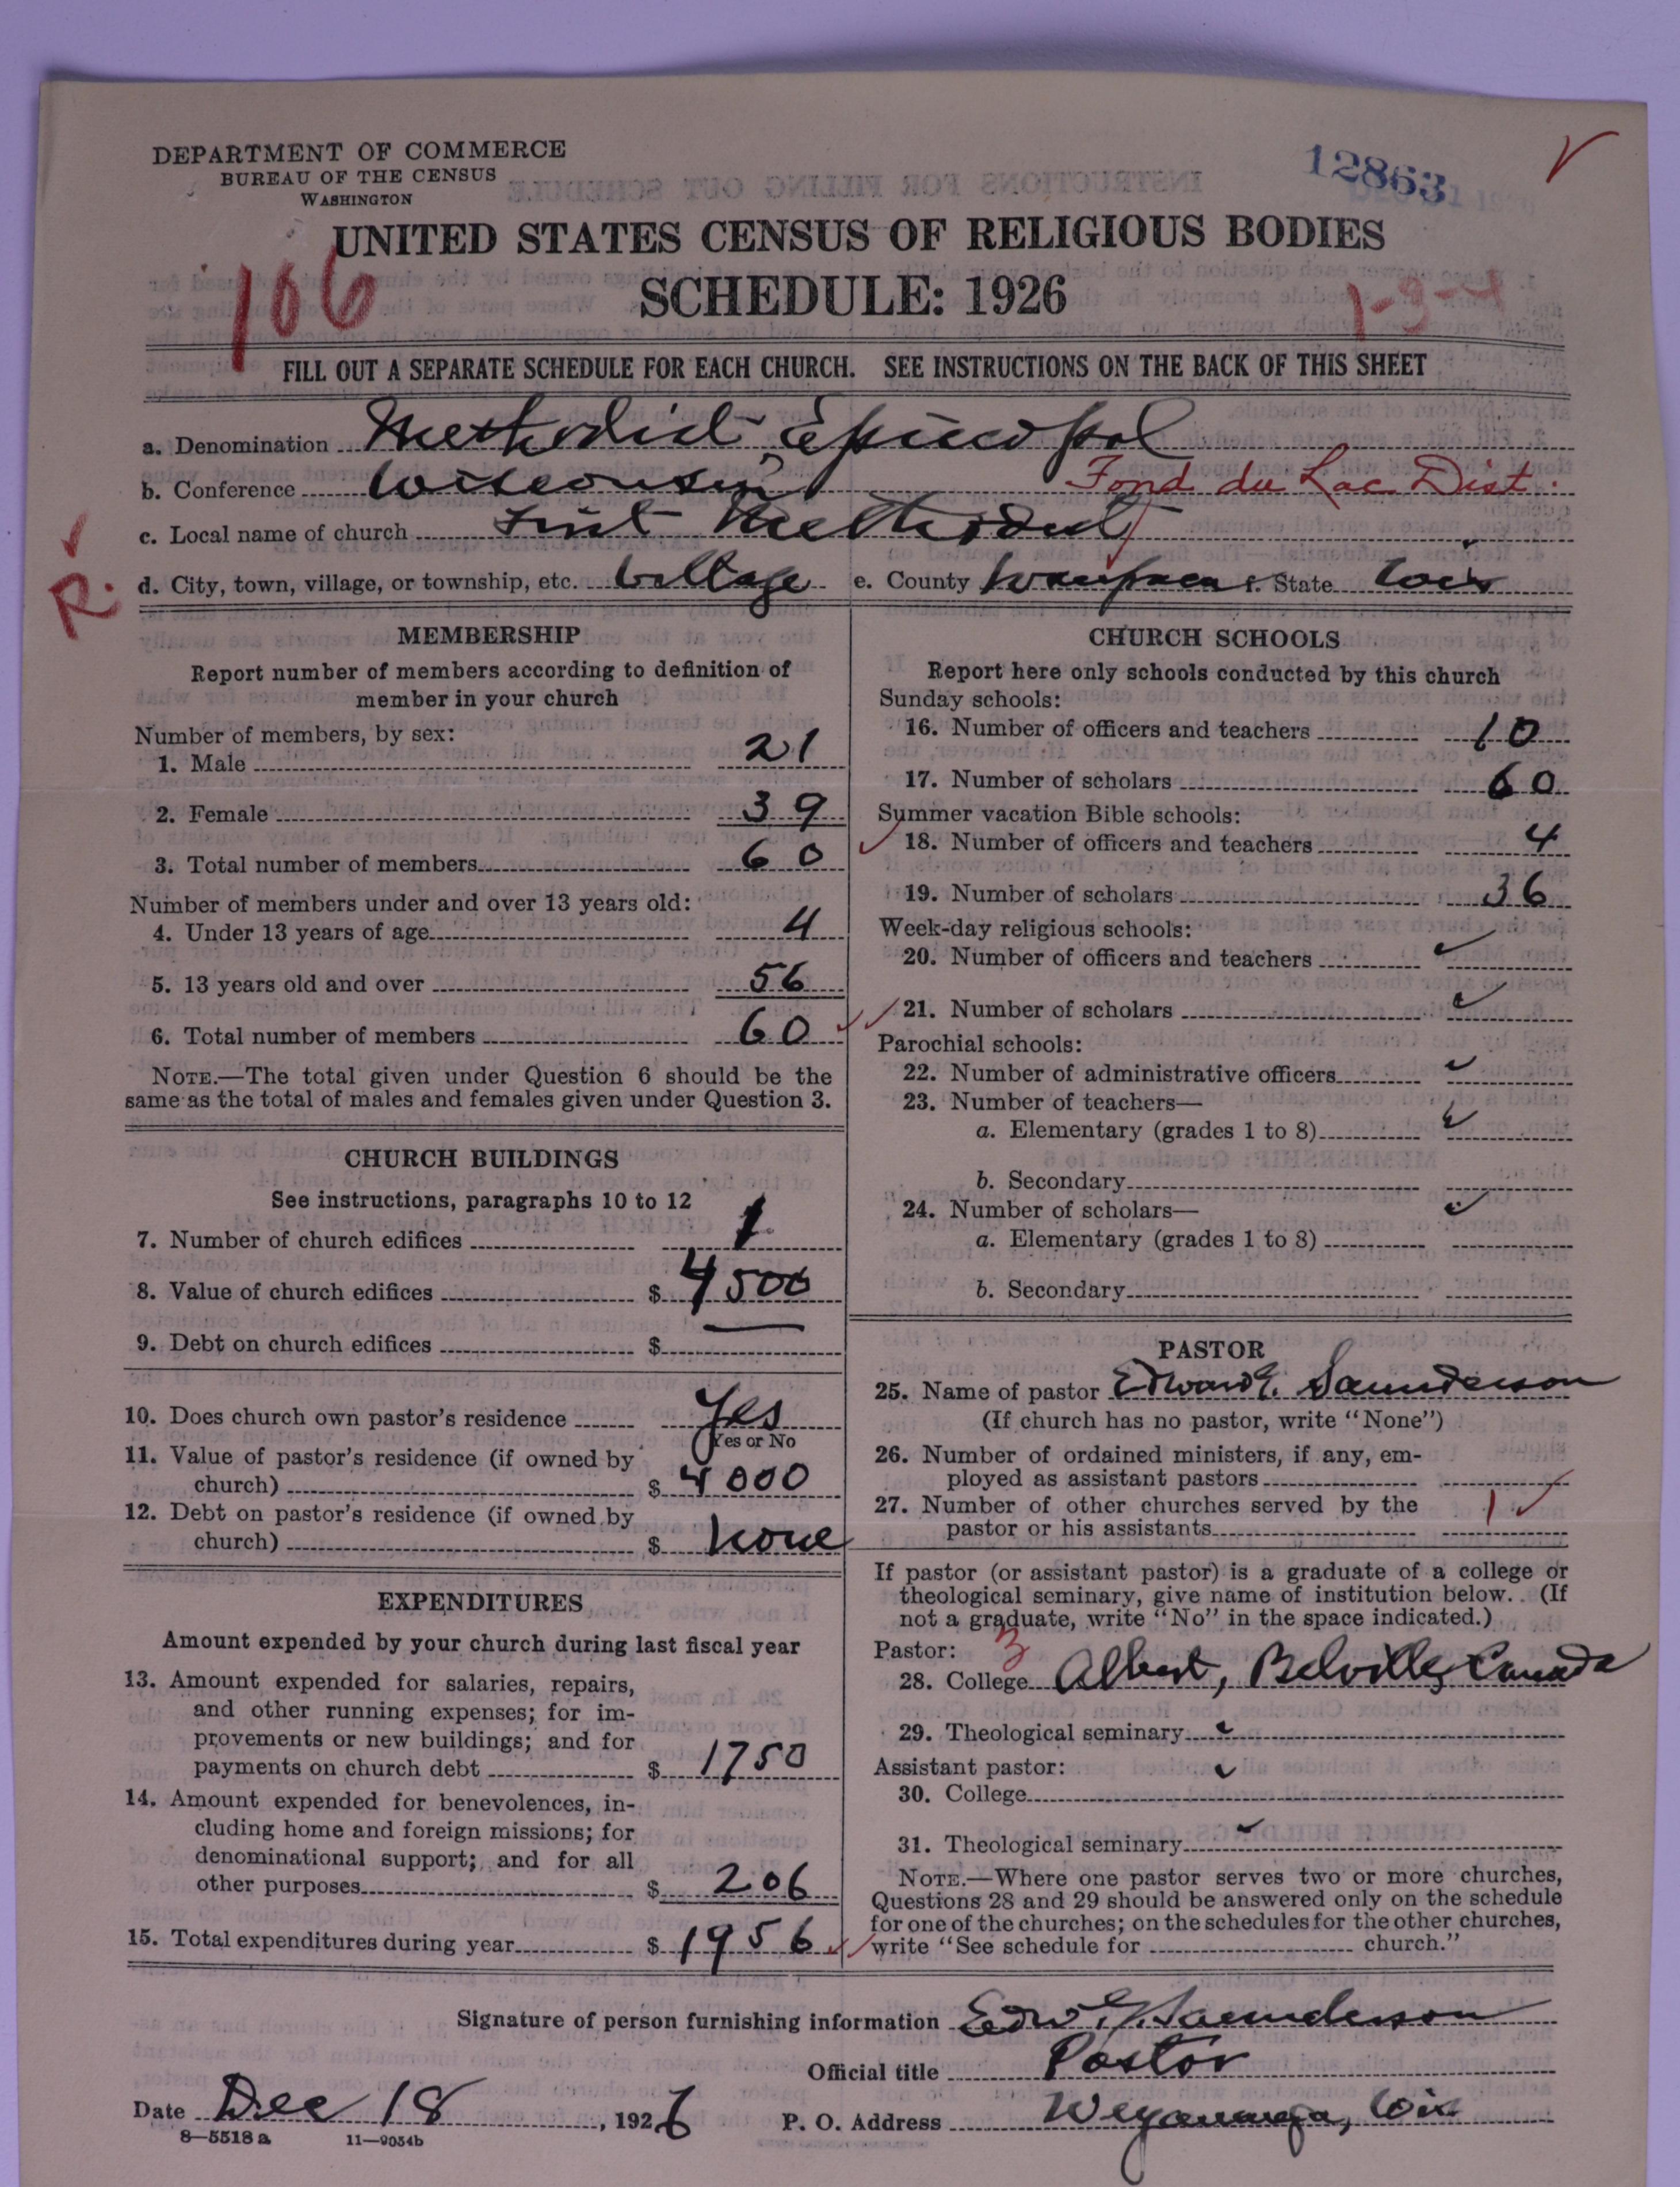 DEPARTMENT OF COMMERCE
BUREAU OF THE CENSUS
WASHINGTON
12863
UNITED STATES CENSUS OF RELIGIOUS BODIES
SCHEDULE: 1926
106
1-3-4
FILL OUT A SEPARATE SCHEDULE FOR EACH CHURCH. SEE INSTRUCTIONS ON THE BACK OF THIS SHEET
a. Denomination Methodist Episcopal
b. Conference Wisconsin Fond du Lac Dist.
c. Local name of church First Methodist
R.
d. City, town, village, or township, etc. Village e. County Waupaca f. State Wis
MEMBERSHIP
Report number of members according to definition of
member in your church
Number of members, by sex:
1. Male 21
2. Female 39
3. Total number of members 60
Number of members under and over 13 years old:
4. Under 13 years of age 4
5. 13 years old and over 56
6. Total number of members 60
NOTE.—The total given under Question 6 should be the
same as the total of males and females given under Question 3.
CHURCH BUILDINGS
See instructions, paragraphs 10 to 12
7. Number of church edifices 1
8. Value of church edifices $ 4500
9. Debt on church edifices $ —
10. Does church own pastor's residence Yes
Yes or No
11. Value of pastor's residence (if owned by
church) $ 4000
12. Debt on pastor's residence (if owned by
church) $ None
EXPENDITURES
Amount expended by your church during last fiscal year
13. Amount expended for salaries, repairs,
and other running expenses; for im-
provements or new buildings; and for
payments on church debt $ 1750
14. Amount expended for benevolences, in-
cluding home and foreign missions; for
denominational support; and for all
other purposes $ 206
15. Total expenditures during year $ 1956
CHURCH SCHOOLS
Report here only schools conducted by this church
Sunday schools:
16. Number of officers and teachers 10
17. Number of scholars 60
Summer vacation Bible schools:
18. Number of officers and teachers 4
19. Number of scholars 36
Week-day religious schools:
20. Number of officers and teachers
21. Number of scholars
Parochial schools:
22. Number of administrative officers
23. Number of teachers—
a. Elementary (grades 1 to 8)
b. Secondary
24. Number of scholars—
a. Elementary (grades 1 to 8)
b. Secondary
PASTOR
25. Name of pastor Edward E. Saunderson
(If church has no pastor, write "None")
26. Number of ordained ministers, if any, em-
ployed as assistant pastors
27. Number of other churches served by the
pastor or his assistants 1
If pastor (or assistant pastor) is a graduate of a college or
theological seminary, give name of institution below. (If
not a graduate, write "No" in the space indicated.)
Pastor: 3
28. College Albert, Belville, Canada
29. Theological seminary
Assistant pastor:
30. College
31. Theological seminary
NOTE.—Where one pastor serves two or more churches,
Questions 28 and 29 should be answered only on the schedule
for one of the churches; on the schedules for the other churches,
write "See schedule for church."
Signature of person furnishing information Edw. E. Saunderson
Official title Pastor
Date Dec 18, 1926 P. O. Address Weyauwega, Wis
8—5518a 11—9054b